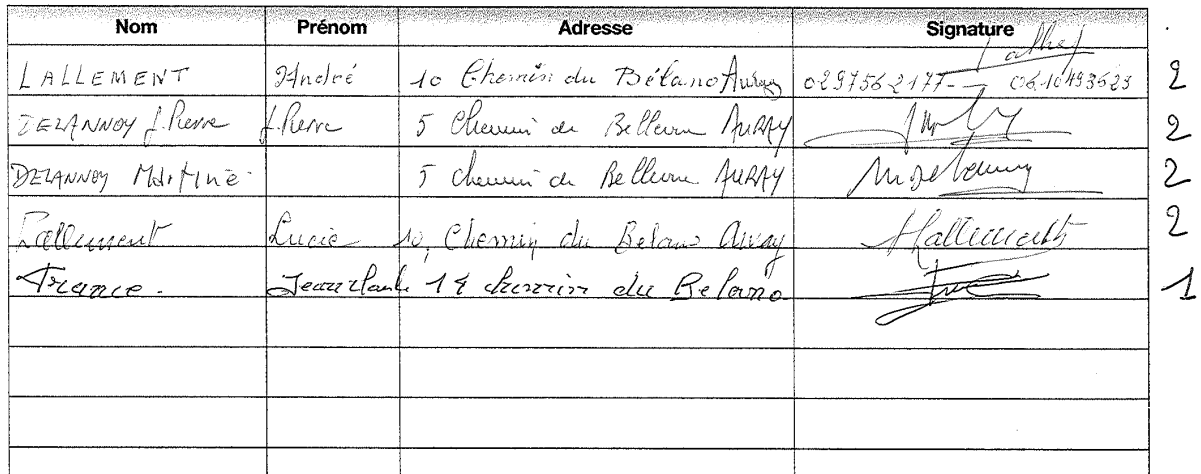 Nom Prénom Adresse Signature
LALLEMENT André 10 Chemin du Bélano Auray 0297562177 - 06.10493623 2
DELANNOY J.Pierre J.Pierre 5 Chemin de Bellevue AURAY 2
DELANNOY Martine 5 chemin de Bellevue AURAY 2
Lallement Lucie 10, Chemin du Belano Auray Lallement 2
France. chemin du Belano 1